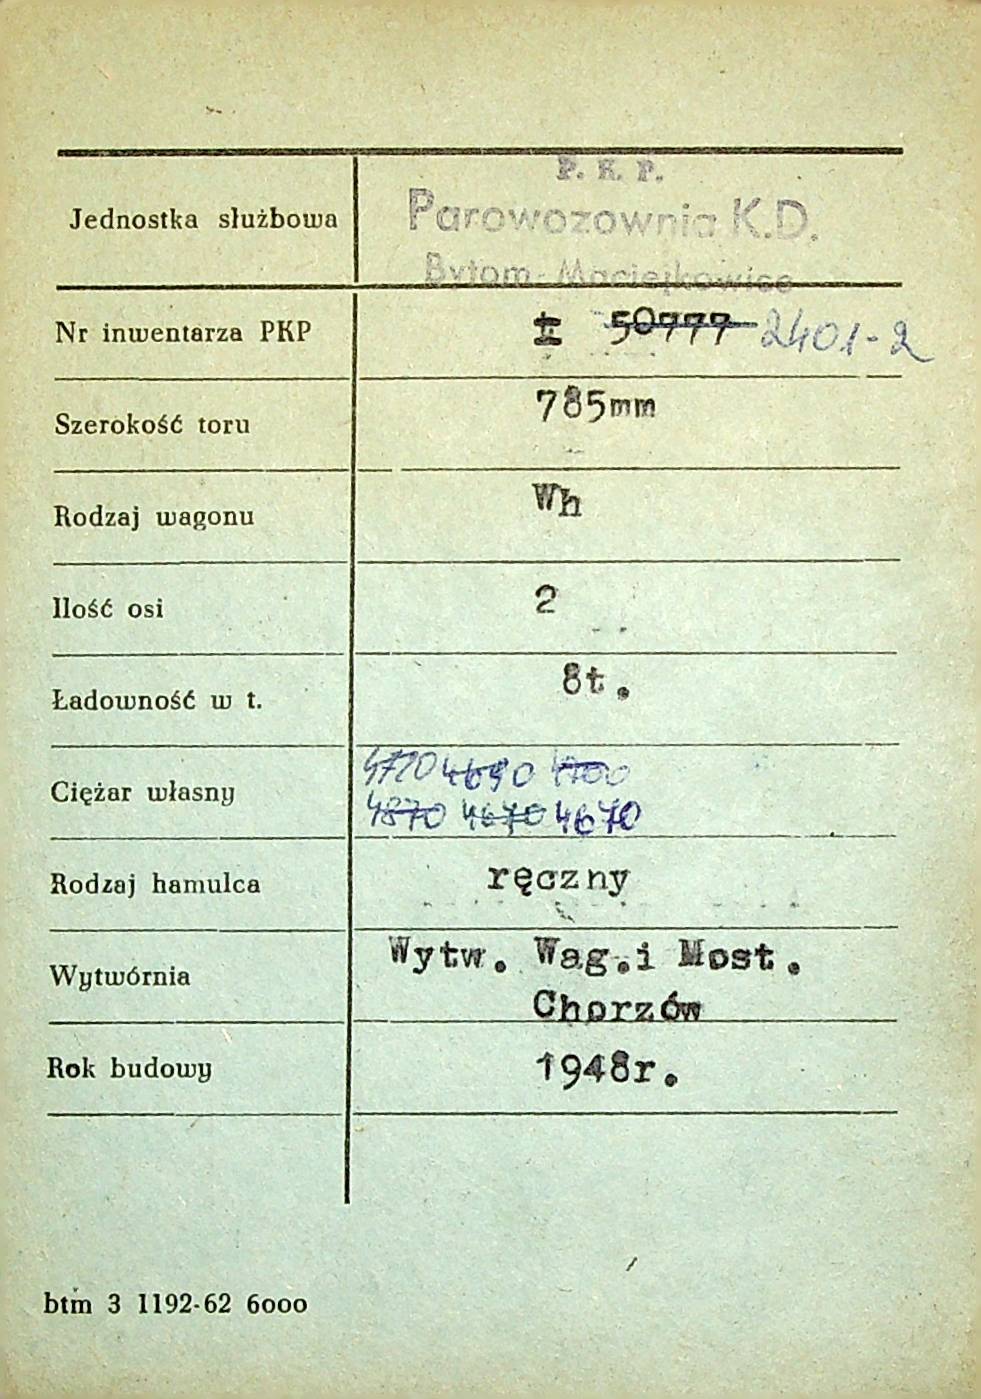 P. K. P.
Jednostka służbowa Parowozownia K.D.
Bytom-Maciejkowice
Nr inwentarza PKP 50777 2401-2
Szerokość toru 785mm
Rodzaj wagonu Wh
Ilość osi 2
Ładowność w t. 8t.
Ciężar własny 4720 4690 4700
4870 4670 4670
Rodzaj hamulca ręczny
Wytwórnia Wytw. Wag.i Most.
Chorzów
Rok budowy 1948r.
btm 3 1192-62 6000